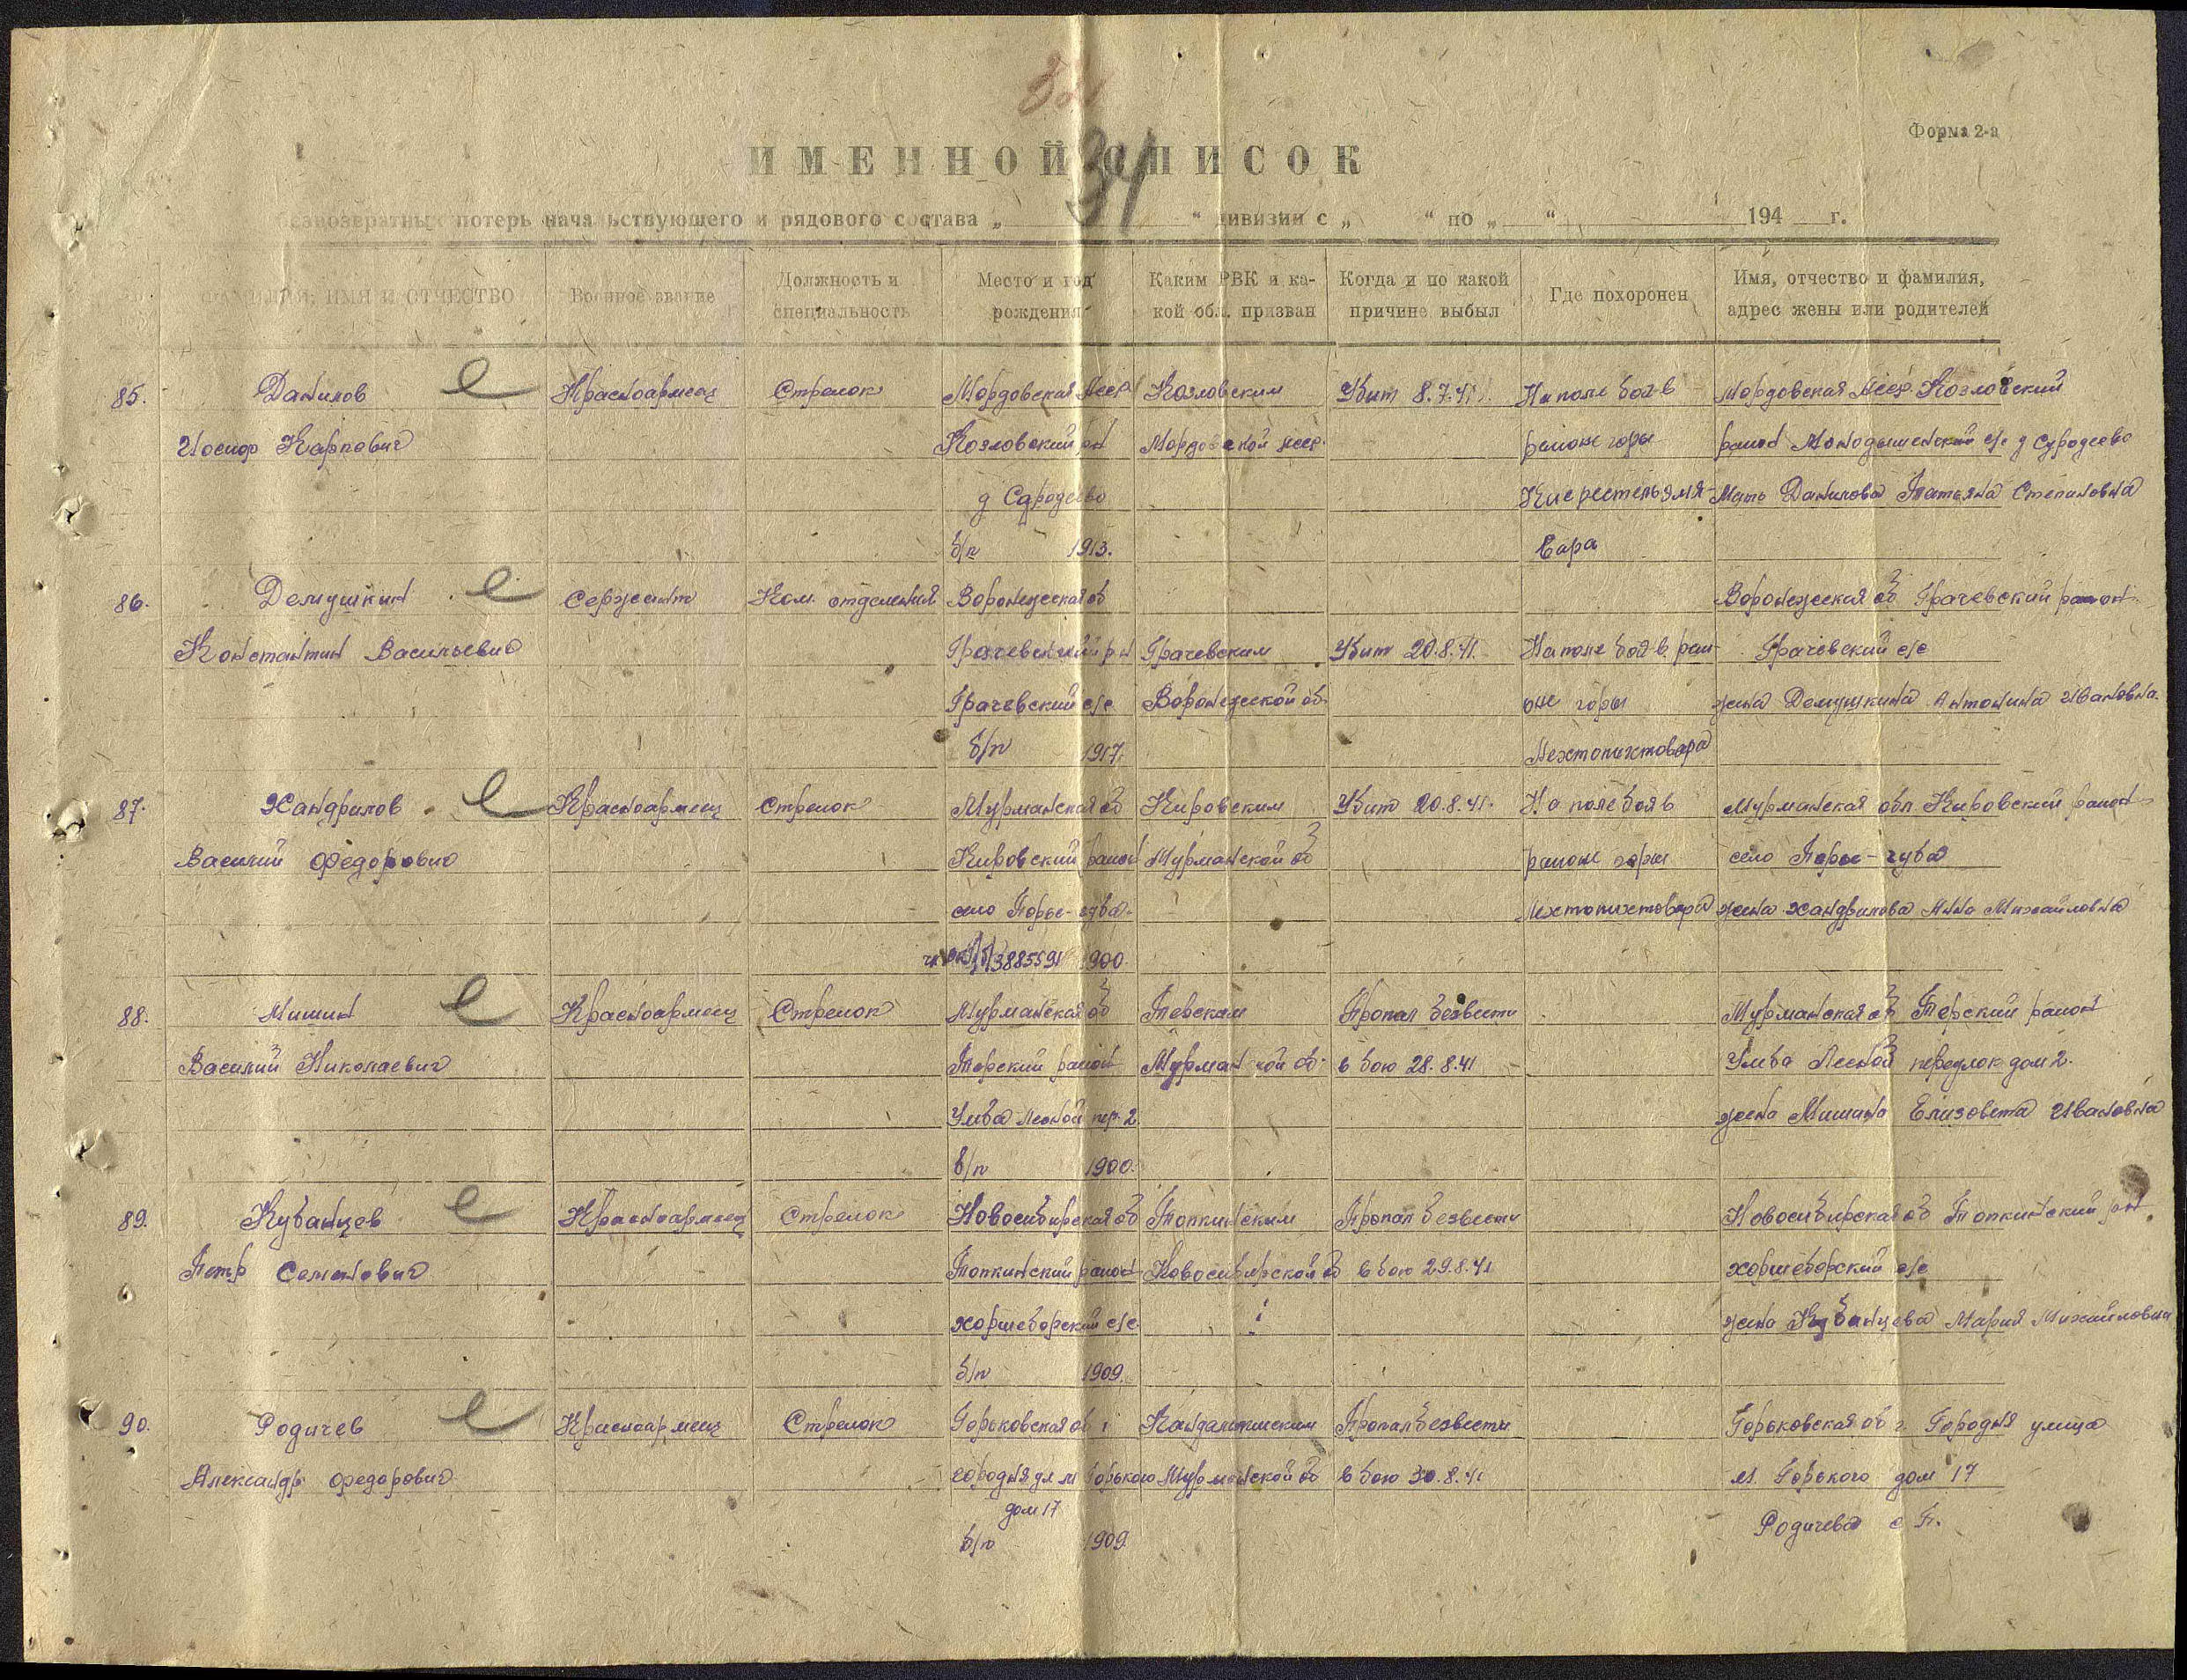 34
Форма 2-а
ИМЕННОЙ СПИСОК
безвозвратных потерь начальствующего и рядового состава „ “ дивизии с „ “ по „ “ 194 г.
ФАМИЛИЯ, ИМЯ И ОТЧЕСТВО
Военное звание
Должность и специальность
Место и год рождения
Каким РВК и какой обл. призван
Когда и по какой причине выбыл
Где похоронен
Имя, отчество и фамилия, адрес жены или родителей
85. Данилов Красноармеец Стрелок Мордовская Асср Козловским Убит 8.7.41. На поле боя в Мордовская Асср Козловский
Иосиф Карпович Козловский рн Мордовской Асср. районе горы район с/с д Суродеево
д Сародеево Мать Данилова Татьяна Степановна
б/п 1913. Вара
86. Демушкин Сержант Ком. отделения Воронежская об Воронежская об Грачевский район
Константин Васильевич Грачевский рн Грачевским Убит 20.8.41. На поле боя в рай- Грачевский с/с
Грачевский с/с Воронежской об. оне горы жена Демушкина Антонина Ивановна.
б/п 1917. Лехтопихтовара
87. Хандриков Красноармеец Стрелок Мурманская об Кировским Убит 20.8.41. На поле боя в Мурманская обл. Кировский район
Василий Федорович Кировский район Мурманской об районе горы село Порье-губа
село Порье-губа. Лехтопихтовара жена Хандрикова Анна Михайловна
3885591 1900.
88. Мишин Красноармеец Стрелок Мурманская об Терским Пропал безвести Мурманская об Терский район
Василий Николаевич Терский район Мурман кой об. в бою 28.8.41 Умба Лесной переулок дом 2.
Умба Лесной пер. 2. жена Мишина Елизовета Ивановна
б/п 1900.
89. Кубанцев Красноармеец Стрелок Новосибирская об Топкинским Пропал безвести Новосибирская об Топкинский рн
Петр Семенович Топкинский район Новосибирской об в бою 29.8.41 хоршеборский с/с
хоршеборский с/с. жена Кубанцева Мария Михайловна
б/п 1909.
90. Родичев Красноармеец Стрелок Горьковская об г Кандалакшским Пропал безвести Горьковская об г. Городня улица
Александр Федорович Городня ул м Горького Мурманской об в бою 30.8.41 М. Горького дом 17
дом 17 Родичева с П.
б/п 1909